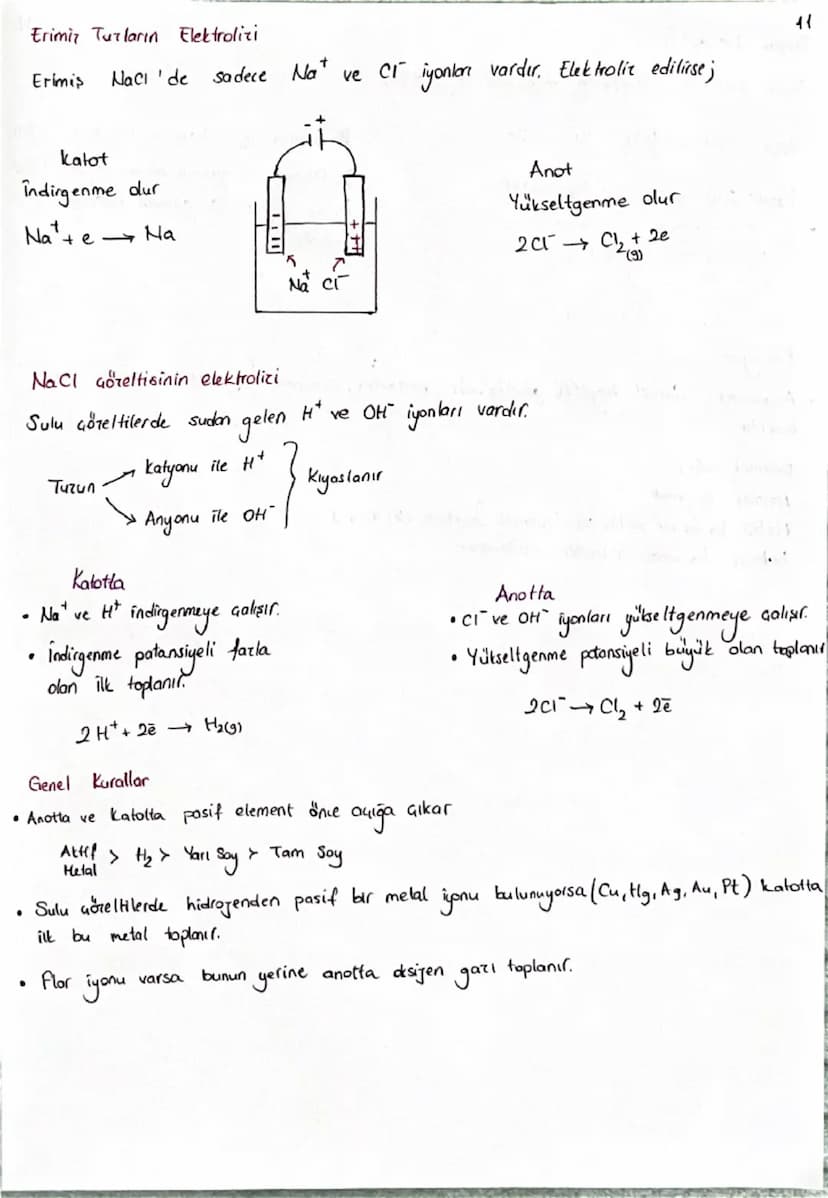 11
Erimiş Tuzların Elektrolizi
Erimiş NaCl 'de sadece Na⁺ ve Cl⁻ iyonları vardır. Elektroliz edilirse;
- +
Katot
İndirgenme olur
Na⁺ + e → Na
Anot
Yükseltgenme olur
2Cl⁻ → Cl₂(g) + 2e
Na⁺ Cl⁻
NaCl çözeltisinin elektrolizi
Sulu çözeltilerde sudan gelen H⁺ ve OH⁻ iyonları vardır.
Tuzun
Katyonu ile H⁺
Anyonu ile OH⁻
Kıyaslanır
Katotta
• Na⁺ ve H⁺ indirgenmeye çalışır.
• İndirgenme patansiyeli fazla
olan ilk toplanır.
2H⁺ + 2ē → H₂(g)
Anotta
• Cl⁻ ve OH⁻ iyonları yükseltgenmeye çalışır.
• Yükseltgenme potansiyeli büyük olan toplanır
2Cl⁻ → Cl₂ + 2ē
Genel Kurallar
• Anotta ve Katotta pasif element önce açığa çıkar
Aktif
Metal > H₂ > Yarı Soy > Tam Soy
• Sulu çözeltilerde hidrojenden pasif bir metal iyonu bulunuyorsa (Cu, Hg, Ag, Au, Pt) katotta
ilk bu metal toplanır.
• Flor iyonu varsa bunun yerine anotta oksijen gazı toplanır.